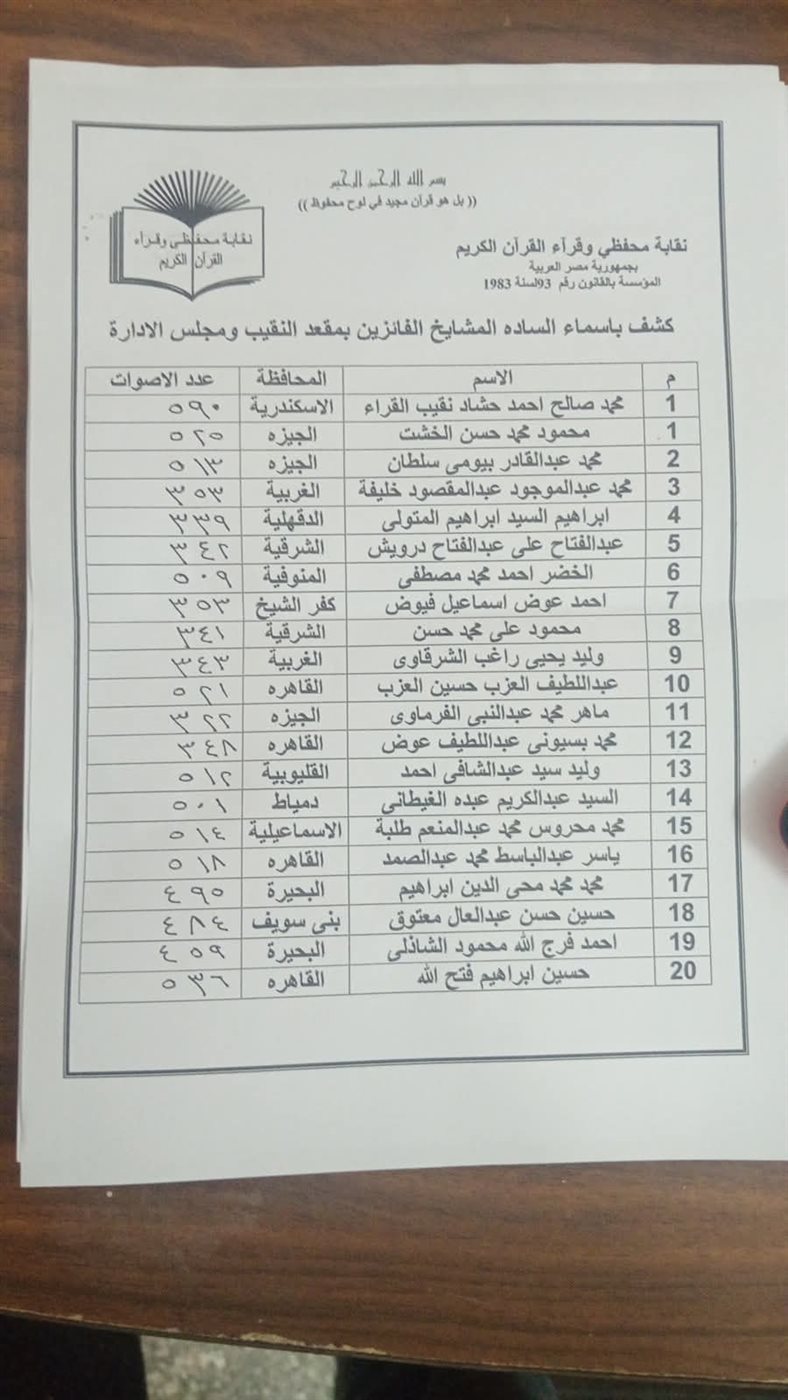 بسم الله الرحمن الرحيم
(( بل هو قرآن مجيد في لوح محفوظ ))
نقابة محفظي وقرآء
القرآن الكريم
نقابة محفظي وقرآء القرآن الكريم
بجمهورية مصر العربية
المؤسسة بالقانون رقم 93لسنة 1983
كشف باسماء الساده المشايخ الفائزين بمقعد النقيب ومجلس الادارة
م الاسم المحافظة عدد الاصوات
1 محمد صالح احمد حشاد نقيب القراء الاسكندرية ٥٩٠
1 محمود محمد حسن الخشت الجيزه ٥٢٥
2 محمد عبدالقادر بيومى سلطان الجيزه ٥١٣
3 محمد عبدالموجود عبدالمقصود خليفة الغربية ٣٥٣
4 ابراهيم السيد ابراهيم المتولى الدقهلية ٣٣٩
5 عبدالفتاح على عبدالفتاح درويش الشرقية ٣٤٢
6 الخضر احمد محمد مصطفى المنوفية ٥٠٩
7 احمد عوض اسماعيل فيوض كفر الشيخ ٣٥٣
8 محمود على محمد حسن الشرقية ٣٤١
9 وليد يحيى راغب الشرقاوى الغربية ٣٤٣
10 عبداللطيف العزب حسين العزب القاهره ٥٢١
11 ماهر محمد عبدالنبى الفرماوى الجيزه ٣٢٢
12 محمد بسيونى عبداللطيف عوض القاهره ٣٤٨
13 وليد سيد عبدالشافى احمد القليوبية ٥١٢
14 السيد عبدالكريم عبده الغيطانى دمياط ٥٠١
15 محمد محروس محمد عبدالمنعم طلبة الاسماعيلية ٥١٤
16 ياسر عبدالباسط محمد عبدالصمد القاهره ٥١٨
17 محمد محمد محى الدين ابراهيم البحيرة ٤٩٥
18 حسين حسن عبدالعال معتوق بنى سويف ٤٨٤
19 احمد فرج الله محمود الشاذلى البحيرة ٤٥٩
20 حسين ابراهيم فتح الله القاهره ٥٣٦